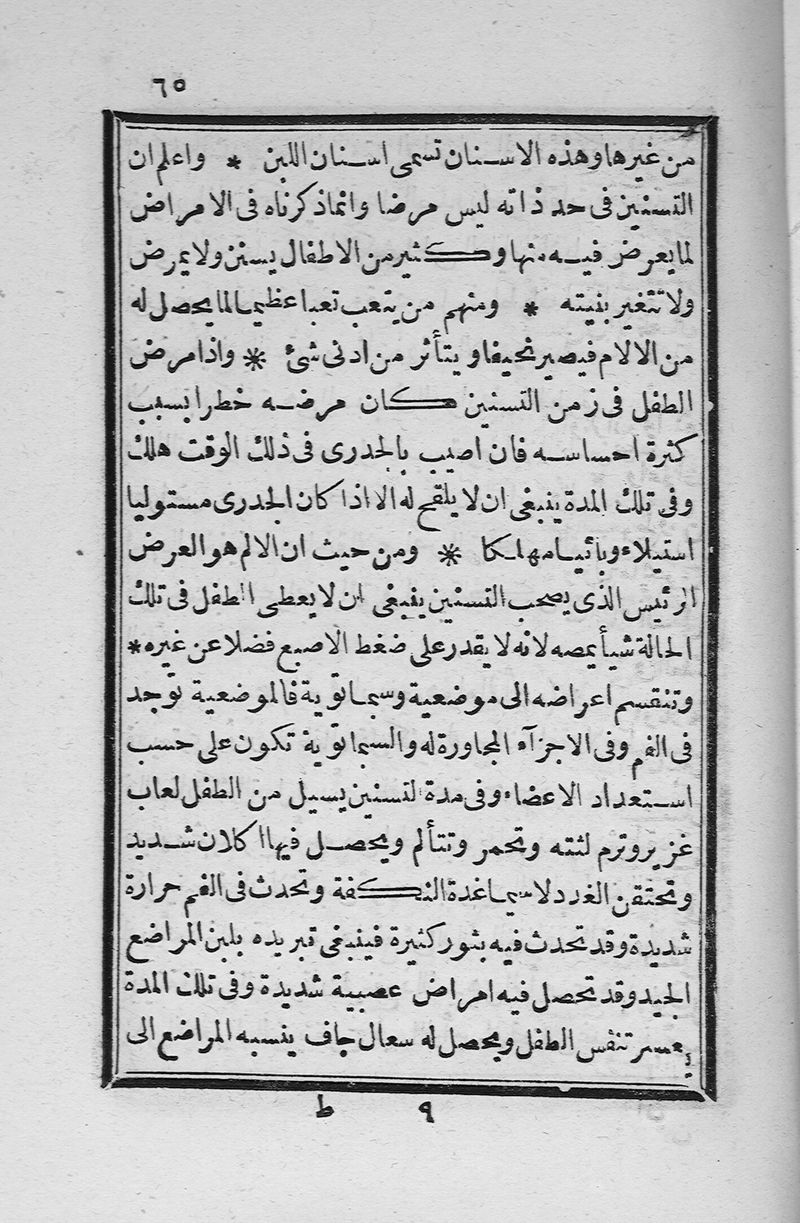 ٦٥
من غيرها وهذه الاسنان تسمى اسنان اللبن * واعلم ان
التسنين فى حد ذاته ليس مرضا وانماذكرناه فى الامراض
لما يعرض فيه منها وكثير من الاطفال يسنن ولا يمرض
ولا تتغير بنيته * ومنهم من يتعب تعبا عظيما لما يحصل له
من الالام فيصير نحيفا ويتأثر من ادنى شئ * واذا مرض
الطفل فى زمن التسنين كان مرضه خطرا بسبب
كثرة احساسه فان اصيب بالجدرى فى ذلك الوقت هلك
وفى تلك المدة ينبغى ان لا يلقح له الا اذا كان الجدرى مستوليا
استيلاء وبائيا مهلكا * ومن حيث ان الالم هو العرض
الرئيس الذى يصحب التسنين ينبغى ان لا يعطى الطفل فى تلك
الحالة شيأ يمصه لانه لا يقدر على ضغط الاصبع فضلا عن غيره *
وتنقسم اعراضه الى موضعية وسمباتوية فالموضعية توجد
فى الفم وفى الاجزآء المجاورة له والسمباتوية تكون على حسب
استعداد الاعضاء وفى مدة التسنين يسيل من الطفل لعاب
غزير وترم لثته وتحمر وتتألم ويحصل فيها اكلان شديد
وتحتقن الغدد لا سيما غدة النكفة وتحدث فى الفم حرارة
شديدة وقد تحدث فيه بثور كثيرة فينبغى تبريده بلبن المراضع
الجيد وقد تحصل فيه امراض عصبية شديدة وفى تلك المدة
يعسر تنفس الطفل ويحصل له سعال جاف ينسبه المراضع الى
٩ ط